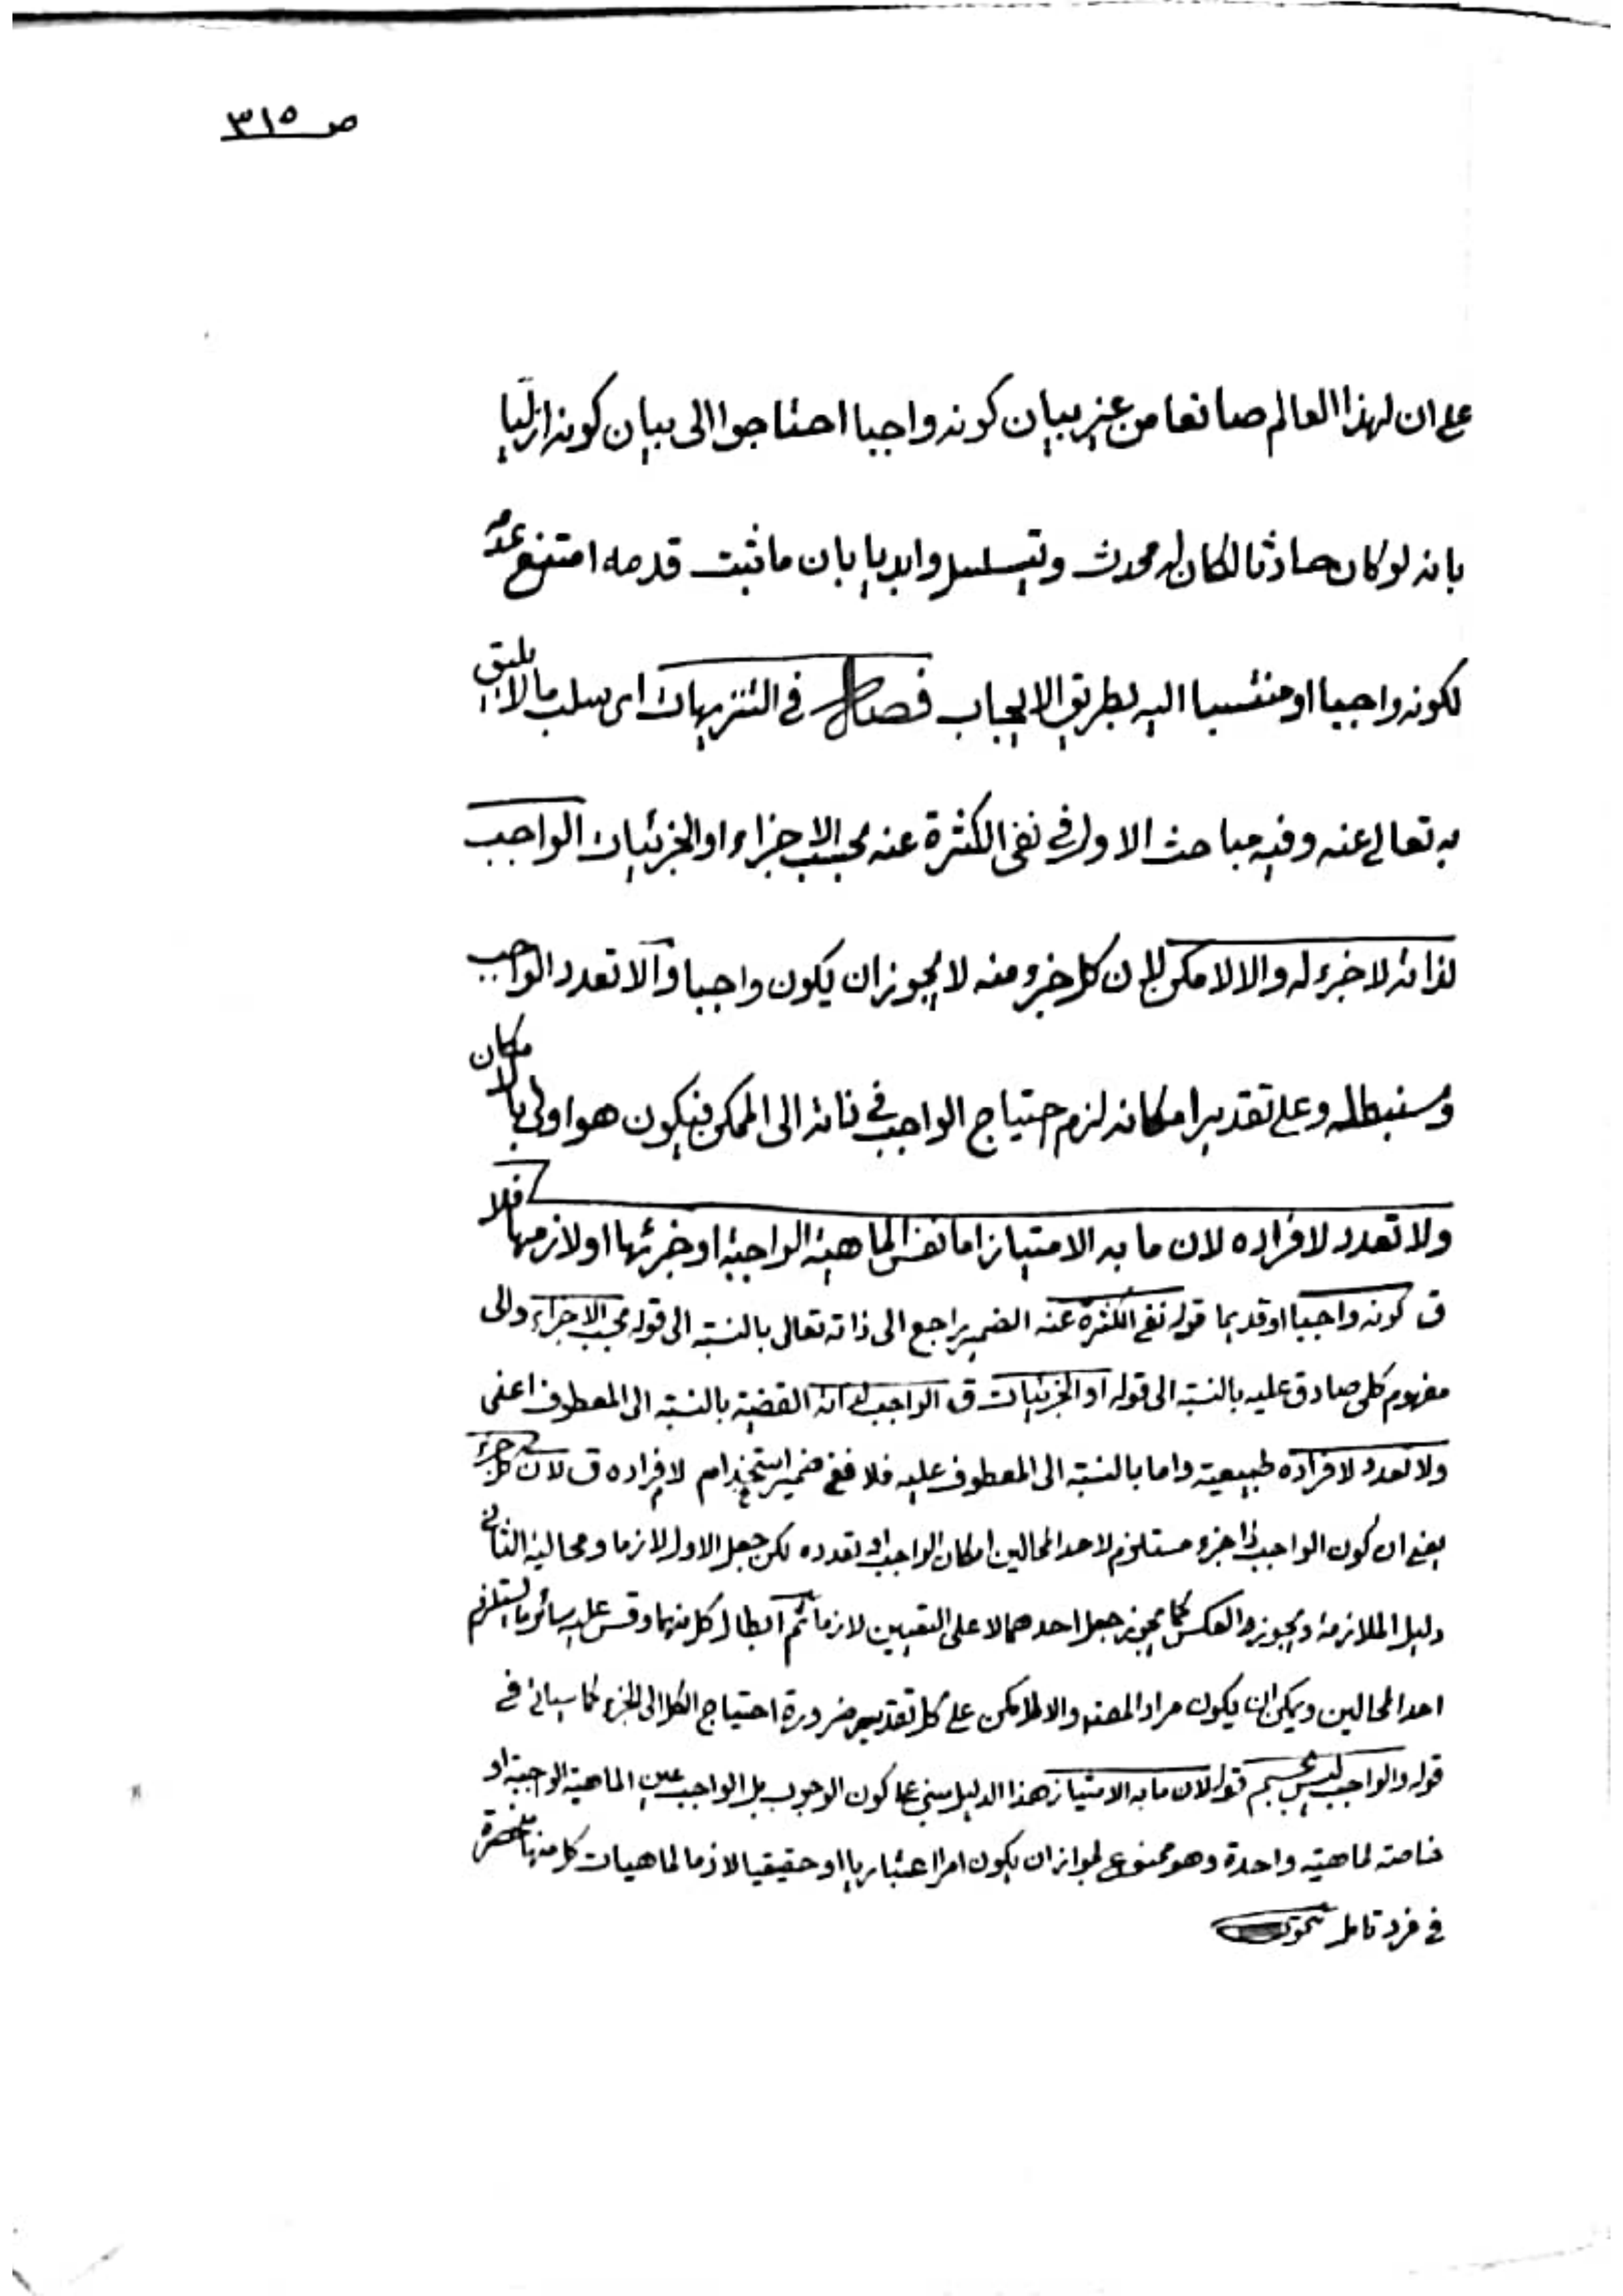 ص ٣١٥
على ان لهذا العالم صانعا من غير بيان كونه واجبا احتاجوا الى بيان كونه ازليا
بانه لو كان حادثا لكان له محدث وتيسلسل وابديا بان ما ثبت قدمه امتنع عدمه
لكونه واجبا او منتسبا اليه بطريق الايجاب فصل في التنزيهات اى سلب ما لا يليق
به تعالى عنه وفيه مباحث الاول في نفى الكثرة عنه بحسب الاجزاء او الجزئيات الواجب
لذاته لا جزء له والا لامكن لان كل جزء منه لا يجوز ان يكون واجبا والا تعدد الواجب
وسنبطله وعلى تقدير امكانه لزم احتياج الواجب في ذاته الى الممكن فيكون هو اولى بالامكان
ولا تعدد لافراده لان ما به الامتياز اما نفس الماهية الواجبة او جزئها او لازمها فلا
ق كونه واجبا او قديما قوله نفى الكثرة عنه الضمير راجع الى ذاته تعالى بالنسبة الى قوله بحسب الاجزاء والى
مفهوم كلى صادق عليه بالنسبة الى قوله او الجزئيات ق الواجب لذاته القضية بالنسبة الى المعطوف اعنى
ولا تعدد لافراده طبيعية واما بالنسبة الى المعطوف عليه فلا ففى ضمير استخدام لافراده ق لان كل جزء
يعنى ان كون الواجب ذا جزء مستلزم لاحد المحالين امكان الواجب او تعدده لكن جعل الاول لازما ومحالية الثانى
دليل الملازمة ويجوز العكس كما يجوز جعل احدهما لا على التعيين لازما ثم ابطال كل منهما وقس عليه سائر ما يستلزم
احد المحالين ويمكن ان يكون مراد المصنف والا لامكن على كل تقدير ضرورة احتياج الكل الى الجزء كما سيأتى في
قوله والواجب ليس بجسم قوله لان ما به الامتياز هذا الدليل مبنى على كون الوجوب بل الواجب عين الماهية الواجبة او
خاصته لماهية واحدة وهو ممنوع لجواز ان يكون امرا اعتباريا او حقيقيا لازما لماهيات كل منها منحصرة
في فرد تامل